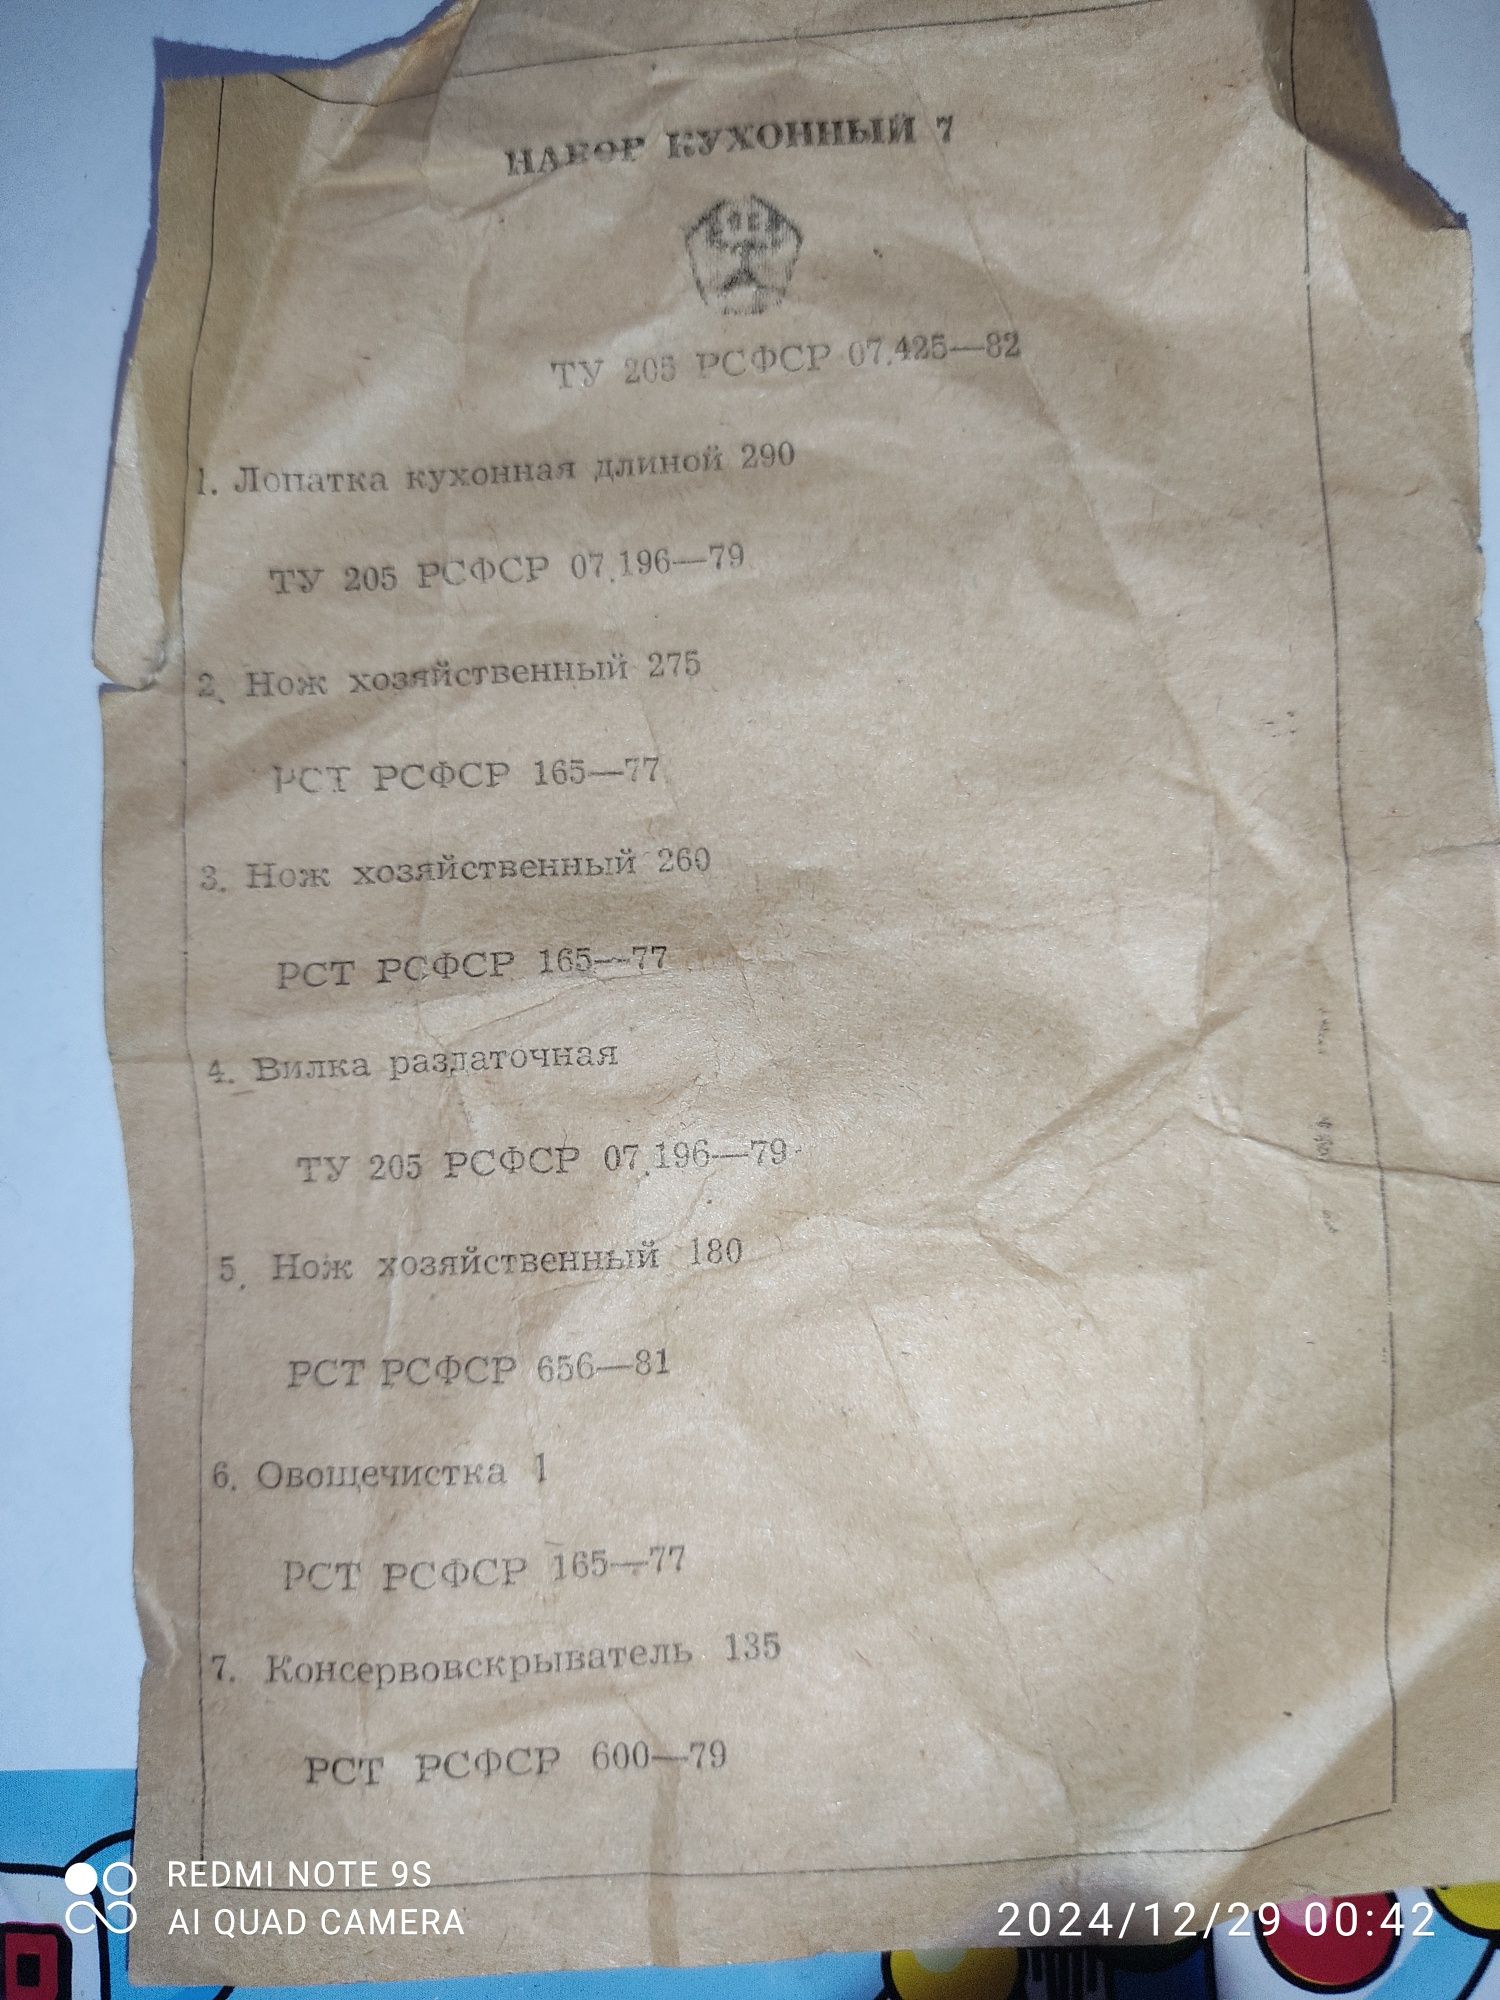 НАБОР КУХОННЫЙ 7
ТУ 205 РСФСР 07.425—82
1. Лопатка кухонная длиной 290
ТУ 205 РСФСР 07.196—79
2. Нож хозяйственный 275
РСТ РСФСР 165—77
3. Нож хозяйственный 260
РСТ РСФСР 165—77
4. Вилка раздаточная
ТУ 205 РСФСР 07.196—79
5. Нож хозяйственный 180
РСТ РСФСР 656—81
6. Овощечистка 1
РСТ РСФСР 165—77
7. Консервовскрыватель 135
РСТ РСФСР 600—79
REDMI NOTE 9S
AI QUAD CAMERA
2024/12/29 00:42